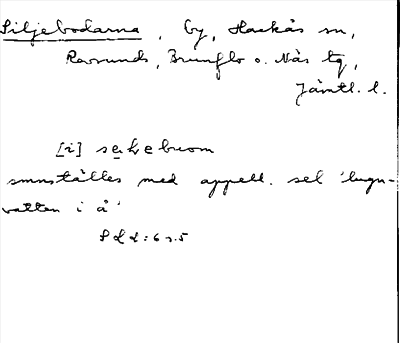 Siljebodarna, by, Hackås sn,
Ravsunds, Brunflo o. Näs tg,
Jämtl. l.
[i]
smnställes med appell. sel 'lugn-
vatten i å'